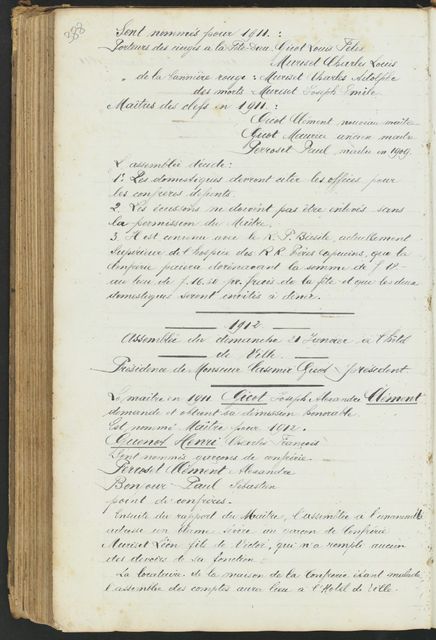 388
Sont nommés pour 1911 :
Porteurs des cierges à la Fête-Dieu Gicot Louis Félix
Muriset Charles Louis
" de la bannière rouge : Muriset Charles Adolphe
des morts Muriset Joseph Emile
Maîtres des clefs en 1911 :
Gicot Clément nouveau maître
Gicot Maurice ancien maître
Perroset Paul, maître en 1909.
L'assemblée décide :
1° Les domestiques devront citer les offices pour
les confrères défunts.
2. Les écussons ne doivent pas être enlevés sans
la permission du Maître.
3. Il est convenu avec le R. P. actuellement
Supérieur de l'hospice des R.R. Pères Capucins, que la
Confrérie paiera dorénavant la somme de f
au lieu de f. 16.50 pr. frais de la fête et que les deux
domestiques seront invités à dîner.
1912
Assemblée du dimanche 21 Janvier à l'Hôtel
de Ville.
Présidence de Monsieur Casimir Gicot, président
Le maître en 1911 Gicot Joseph Alexandre Clément
demande et obtient sa démission honorable.
Est nommé Maître pour 1912.
Quenod Henri Charles François
Sont nommés garçons de confrérie.
Perroset Clément Alexandre
Bonjour Paul Sébastien
point de confrères.
Ensuite du rapport du Maître, l'assemblée à l'unanimité
adresse un blâme sévère au garçon de Confrérie
Muriset Léon fils de Victor, qui n'a rempli aucun
des devoirs de sa fonction.
La locataire de la maison de la Confrérie étant malade,
l'assemblée des comptes aura lieu à l'Hôtel de Ville.